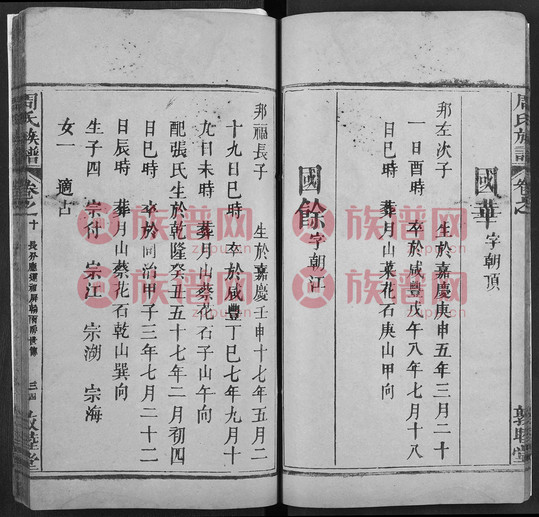 周氏族譜
卷之
國華字朝頂
邦左次子 生於嘉慶庚申五年三月二十
一日酉時 卒於咸豐戊午八年七月十八
巳時 葬月山菜花石庚山甲向
國餘字朝
敦睦堂
邦福長子 生於嘉慶壬申十七年五月二
十九日巳時 卒於咸豐丁巳七年九月十
九日未時 葬月山蔡花石子山午向
配張氏生於乾隆癸丑五十七年二月初四
日巳時 卒於同治甲子三年七月二十二
日辰時 葬月山蔡花石乾山巽向
生子四 宗付 宗江 宗湖 宗海
女一 適占
周氏族譜
卷之十
三四
敦睦堂
族谱网
zupu.cn
族谱网
zupu.cn
族谱网
zupu.cn
族谱网
zupu.cn